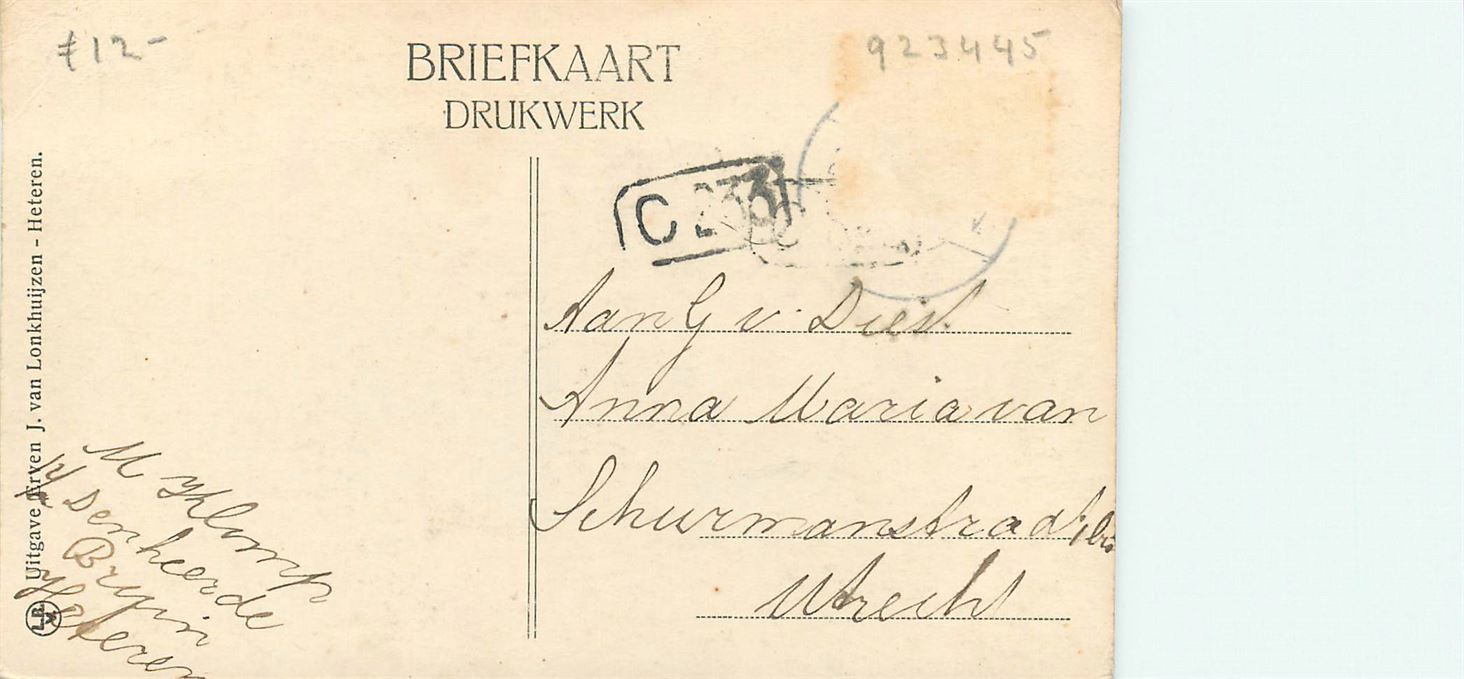 ƒ12-
923445
BRIEFKAART
DRUKWERK
C 233
Aan G v. Diest
Anna Maria van
Schurmanstraat 1 bis
Utrecht
Uitgave Erven J. van Lonkhuijzen - Heteren.
M Klomp
Denheerde
Bruin
Heteren
L.R.